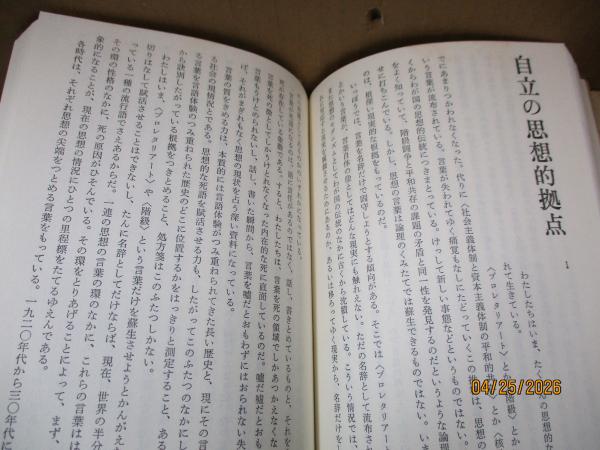 自立の思想的拠点
1
わたしたちはいま、たくさんの思想的な
れて生きている。
〈プロレタリアート〉とか〈階級〉とか
でにあまりつかわれなくなった。代りに〈社会主義体制と資本主義体制の平和的共存〉とか〈核
いう言葉が流布されている。言葉が失われてゆく痛覚もなしにたどっていくこの推移は、思想の
くからわが国の思想的伝統につきまとっている。けっして新しい事態などというものではない。いま
をよく知っていて、階級闘争と平和共存の課題の矛盾と同一性を発見するのだというような論理
せに打ちこんでいる。しかし、思想の言葉は論理のくみたてでは蘇生できるものではない。
のは、根深い現実的な根拠をもっているのだ。
いっぽうでは、言葉を名辞だけで固守しようとする傾向がある。そこでは〈プロレタリアート
言葉が、言葉自体の像としてはどんな現実にも触れえない。ただの名辞として流布され
としてわが国の伝統のなかに古くから沈積している。こういう情況では、
あるいは移ろってゆく現実から、名辞だけを
るのではなく、話し、書きとめているものと、それを
験のなかにある。すると、わたしたちは、言葉を死の領域でしかあつかえなくな
死の像としてしかうけとれなくなった内在的な死に直面しているのだ。嘘だ嘘だとおも
言葉もうけとめられないし、話し、書いた瞬間から、言葉を嘘だとおもわずにはおられない失
ば、それがまがれもなく思想の現状を占う深い資料になっている。
言葉の質をきめる力は、本質的には言語体験がつみ重ねられてきた長い歴史と、現にその言
る社会の現情況とである。思想的な死語を賦活させる力も、したがってこのふたつのなかにし
る言葉を言語体験のつみ重ねられた歴史のどこに位置するかをはっきりと測定すること、ある
から訣別したがっている根拠をつきとめること、処方箋はこのふたつしかない。
わたしはいま、〈プロレタリアート〉や〈階級〉という言葉だけを蘇生させようとかんがえ
切りはなして賦活させることはできないし、たんに名辞としてだけならば、現在、世界の半分
っている一種の流行語でさえあるからだ。一連の思想の言葉の環のなかに、これらの言葉は
その環の性格のなかに、死の原因がひそんでいる。その環をとりあげることによって、まず、
象的になることが、現在の思想の情況にひとつの里程標をたてるゆえんである。
各時代は、それぞれ思想の尖端をつとめる言葉をもっている。一九二〇年代から三〇年代に
04/25/2026